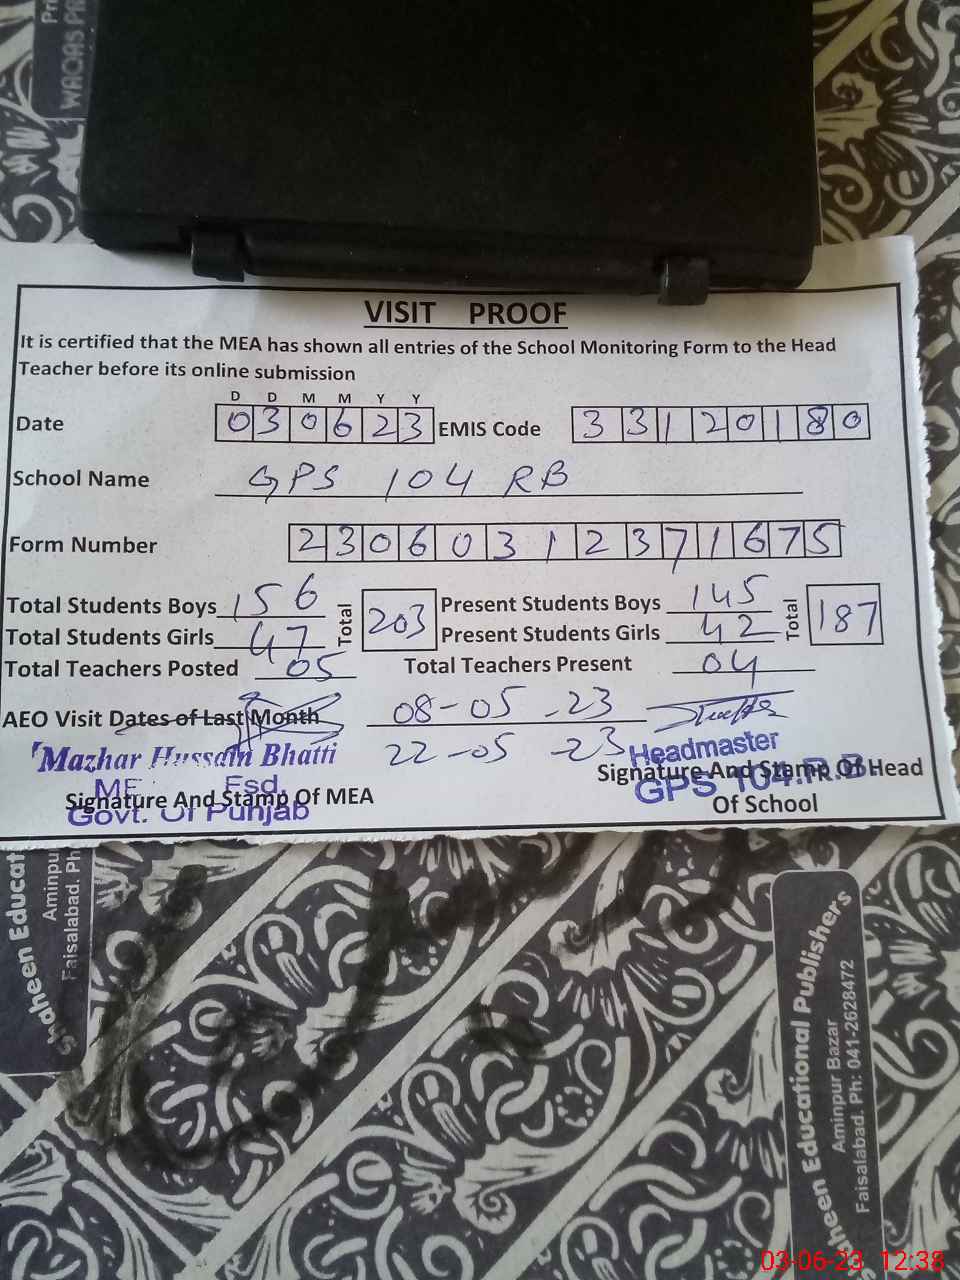 Pri
WAQAS PR
VISIT PROOF
It is certified that the MEA has shown all entries of the School Monitoring Form to the Head
Teacher before its online submission
D D M M Y Y
Date 030623 EMIS Code 33120180
School Name GPS 104 RB
Form Number 23060312371675
Total Students Boys 156 Total 203 Present Students Boys 145 Total 187
Total Students Girls 47 Present Students Girls 42
Total Teachers Posted 05 Total Teachers Present 04
AEO Visit Dates of Last Month 08-05-23
22-05-23
Mazhar Hussain Bhatti
Fsd.
Govt. Of Punjab
Signature And Stamp Of MEA
Headmaster
GPS 104.R.B.
Signature And Stamp Of Head
Of School
Shaheen Educat
Aminpu
Faisalabad. Ph
aheen Educational Publishers
Aminpur Bazar
Faisalabad. Ph: 041-2628472
03-06-23 12:38